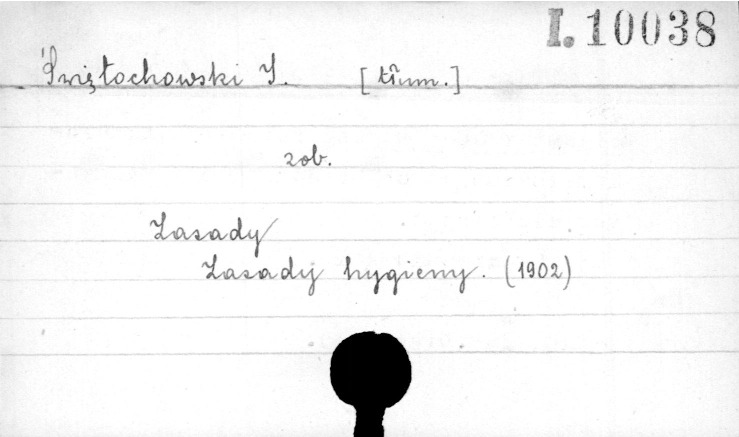 I. 10038
Świętochowski I. [tłum.]
zob.
Zasady
Zasady hygieny. (1902)